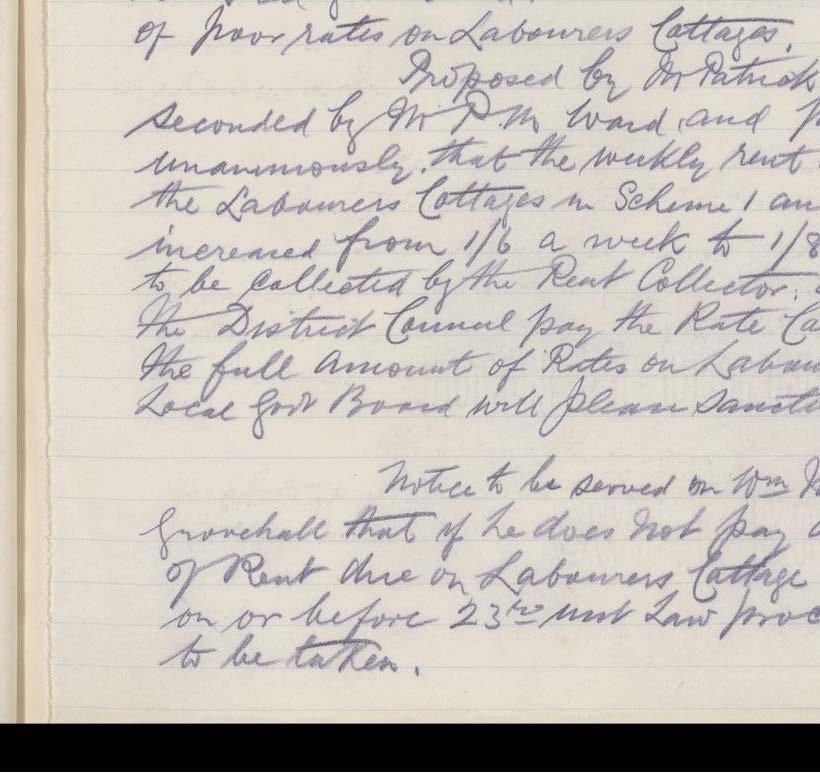 of poor rates on Labourers Cottages.
Proposed by Mr Patrick
seconded by Mr P.M. Ward, and
unanimously, that the weekly rent
the Labourers Cottages in Scheme 1 an
increased from 1/6 a week to 1/8
to be collected by the Rent Collector,
the District Council pay the Rate
the full amount of Rates on Labour
Local Govt Board will please sanct
Notice to be served on Wm
Grovehall that if he does not pay
of Rent due on Labourers Cottage
on or before 23rd inst Law proc
to be taken.